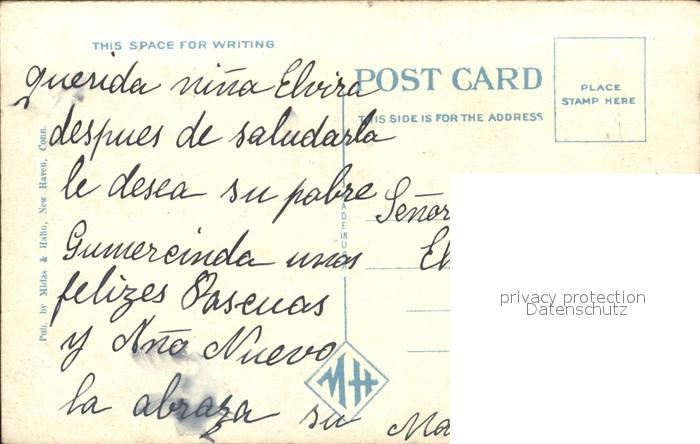 THIS SPACE FOR WRITING
Querida niña Elvira
despues de saludarla
le desea su pobre
Gumercinda unas
felizes Pascuas
y Año Nuevo
la abraza su
POST CARD
THIS SIDE IS FOR THE ADDRESS
PLACE
STAMP HERE
Señor
El
Ma
MADE IN U.S.A.
MH
Pub. by Midas & Hahn, New Haven, Conn.
privacy protection
Datenschutz